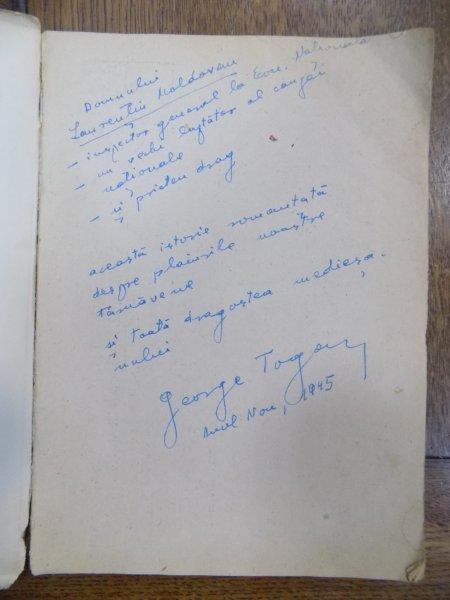 Domnului
Laurențiu Moldovan
- inspector general la Econ. Națională
- un vechi luptător al cauzei
naționale
- și prieten drag
această istorie romanțată
despre plaiurile noastre
târnăvene
și toată dragostea medieșa-
nului
George Togan
Anul Nou, 1945